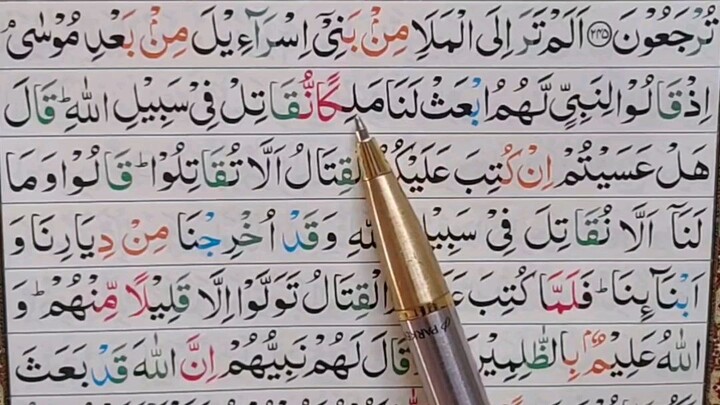 تُرْجَعُوْنَ ﴿۲۴۵﴾ اَلَمْ تَرَ اِلَى الْمَلَاِ مِنْۢ بَنِیْۤ اِسْرَآءِیْلَ مِنْۢ بَعْدِ مُوْسٰیۘ
اِذْ قَالُوْا لِنَبِیٍّ لَّهُمُ ابْعَثْ لَنَا مَلِكًا نُّقَاتِلْ فِیْ سَبِیْلِ اللّٰهِ ؕ قَالَ
هَلْ عَسَیْتُمْ اِنْ كُتِبَ عَلَیْكُمُ الْقِتَالُ اَلَّا تُقَاتِلُوْا ؕ قَالُوْا وَمَا
لَنَاۤ اَلَّا نُقَاتِلَ فِیْ سَبِیْلِ اللّٰهِ وَقَدْ اُخْرِجْنَا مِنْ دِیَارِنَا وَ
اَبْنَآئِنَا ؕ فَلَمَّا كُتِبَ الْقِتَالُ تَوَلَّوْا اِلَّا قَلِیْلًا مِّنْهُمْ ؕ وَ
اللّٰهُ عَلِیْمٌۢ بِالظّٰلِمِیْنَ قَالَ لَهُمْ نَبِیُّهُمْ اِنَّ اللّٰهَ قَدْ بَعَثَ
PARKER